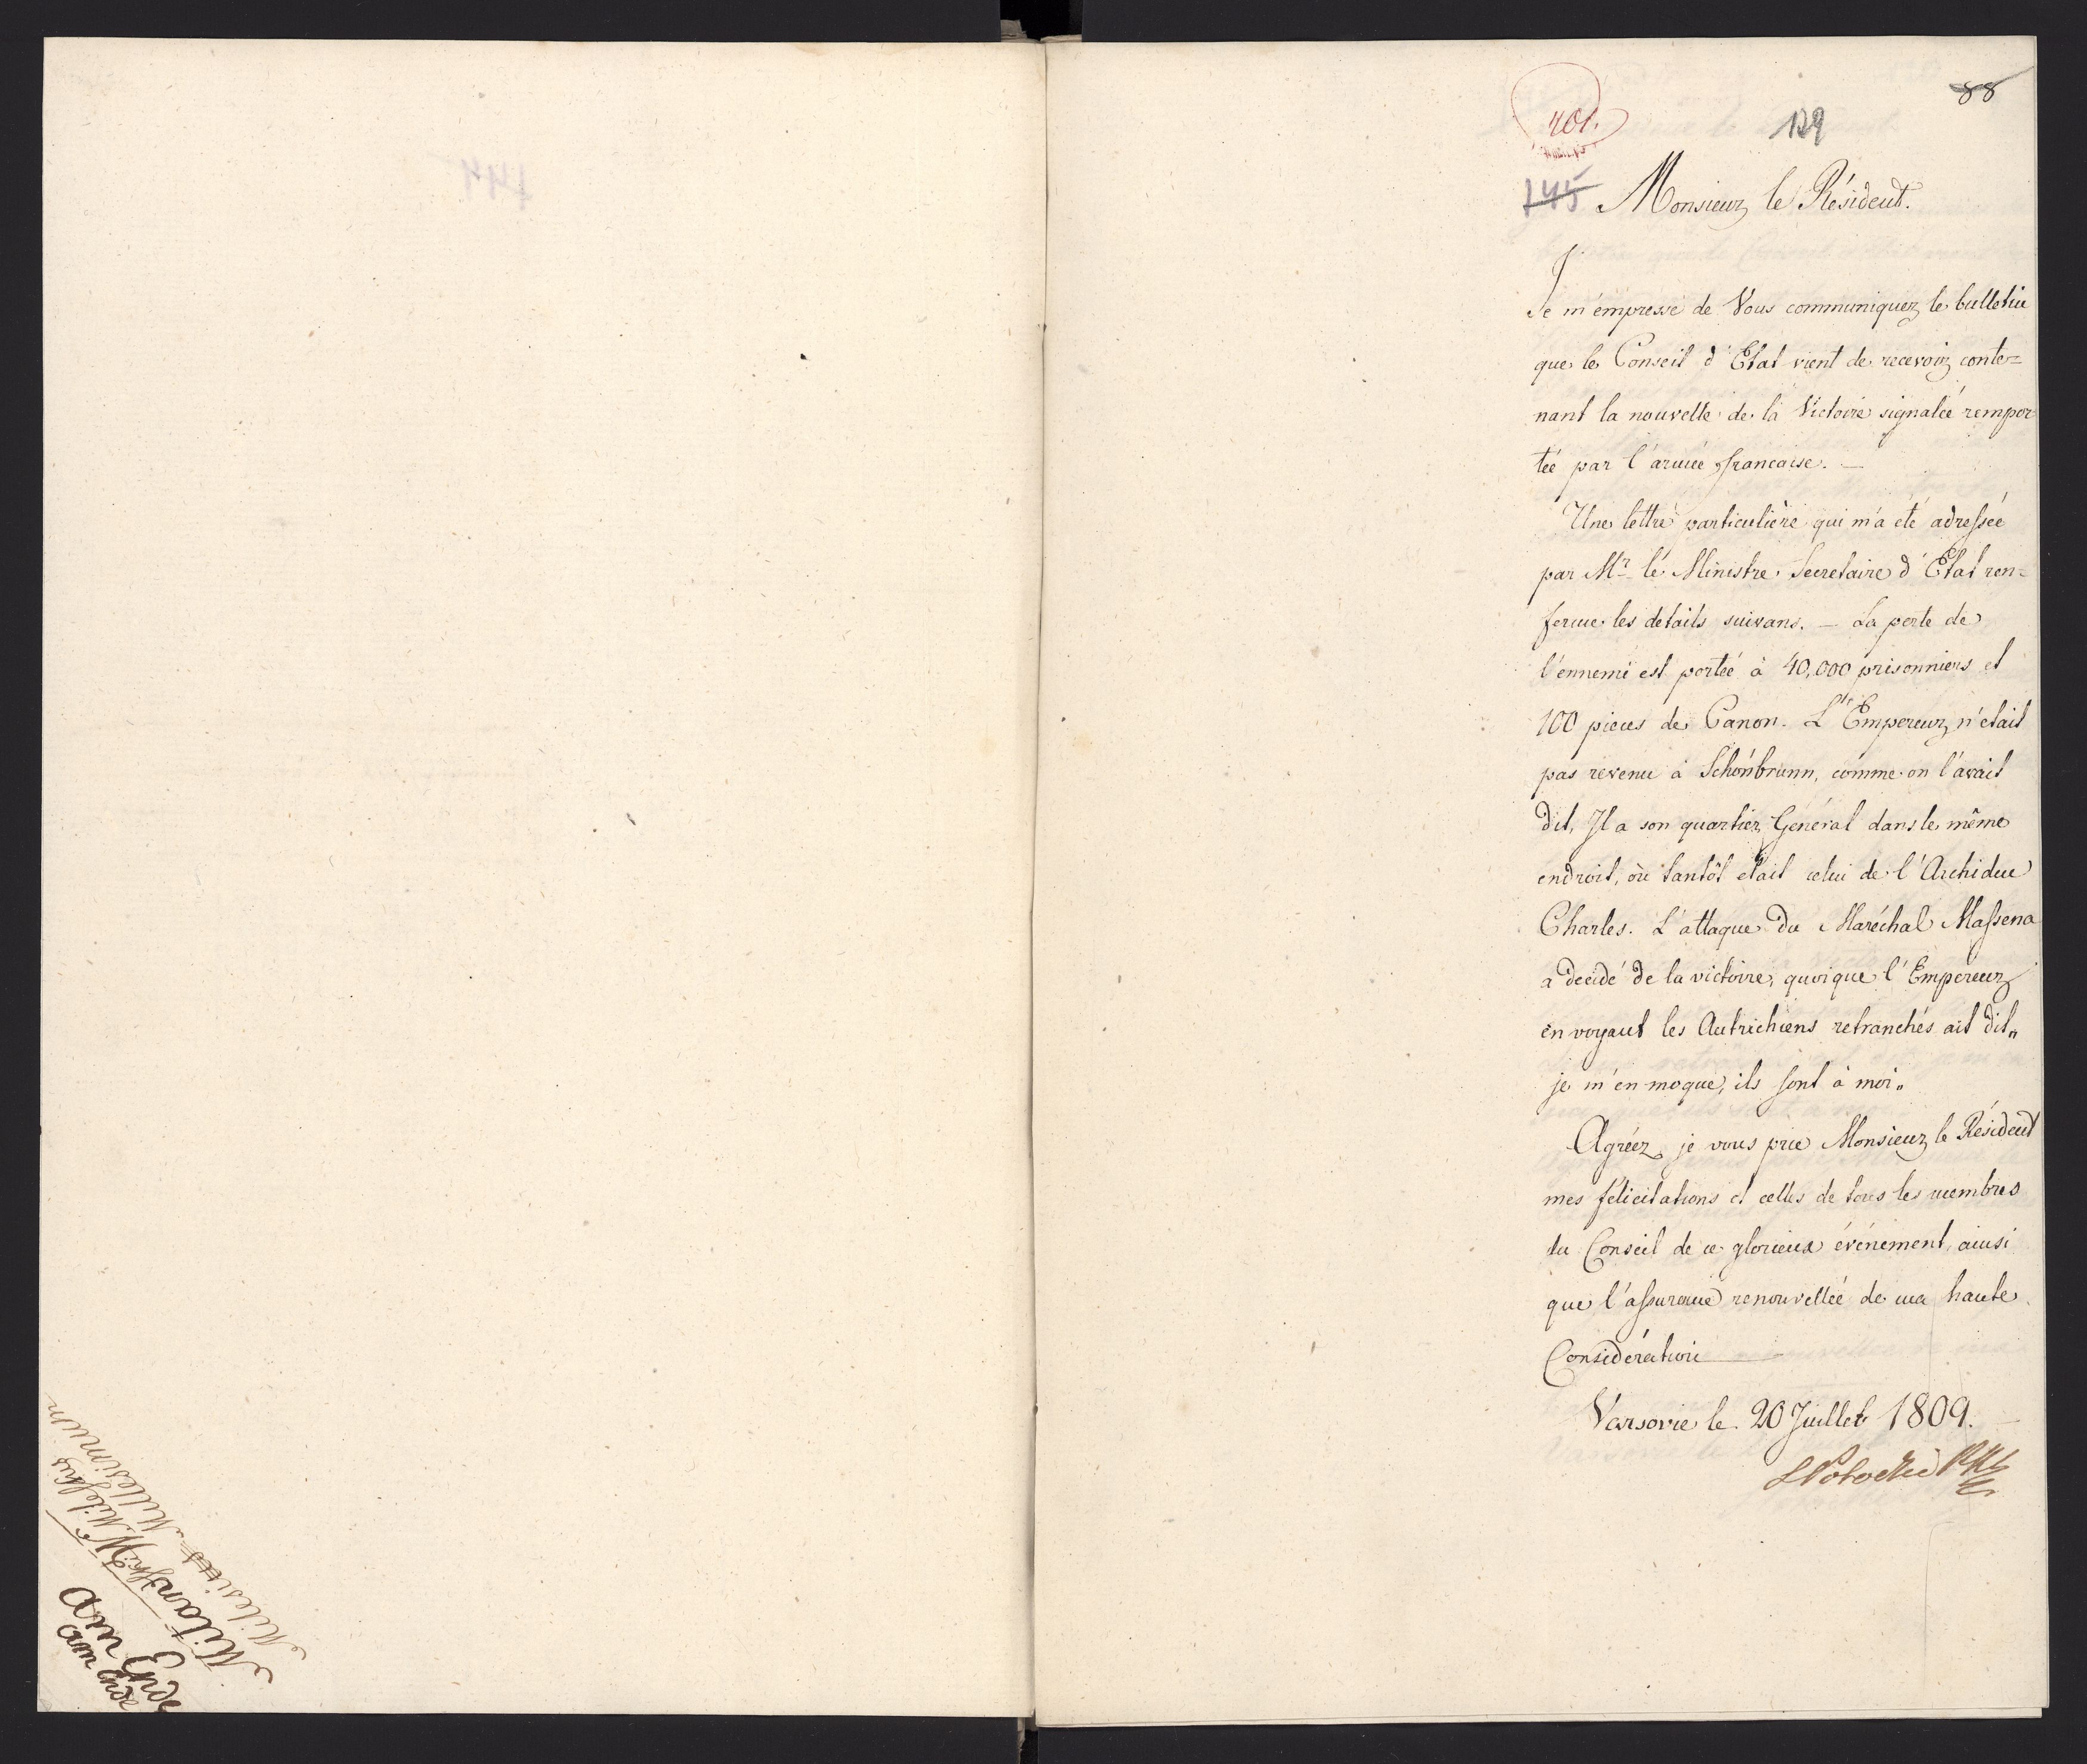 Milesius Millesimum
Milanski N. Milessius
Ende am
am Ende
88
401.
129
145
Monsieur le Résident.
Je m'empresse de Vous communiquer le bulletin
que le Conseil d'Etat vient de recevoir conte=
nant la nouvelle de la Victoire signalée rempor
tée par l'armée francaise. —
Une lettre particulière qui m'a été adressée
par Mr le Ministre Secretaire d'Etat ren=
ferme les details suivans. — La perte de
l'ennemi est portée à 40,000 prisonniers et
100 pieces de Canon. L'Empereur n'etait
pas revenu à Schönbrunn, comme on l'avait
dit, Il a son quartier Géneral dans le même
endroit, où tantôt etait celui de l'Archiduc
Charles. L'attaque du Maréchal Massena
a decidé de la victoire, quoique l'Empereur
en voyant les Autrichiens retranchés ait dit„
je m'en moque, ils sont à moi„
Agréez, je vous prie Monsieur le Résident
mes félicitations et celles de tous les membres
du Conseil de ce glorieux événement, ainsi
que l'assurance renouvellée de ma haute
Considération
Varsovie le 20 Juillet 1809. —
S Potocki